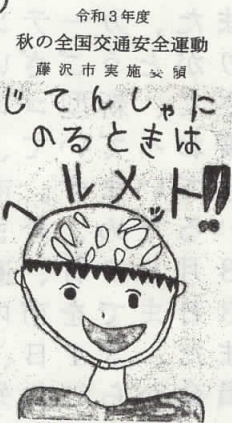 令和3年度
秋の全国交通安全運動
藤沢市実施要領
じてんしゃに
のるときは
ヘルメット!!